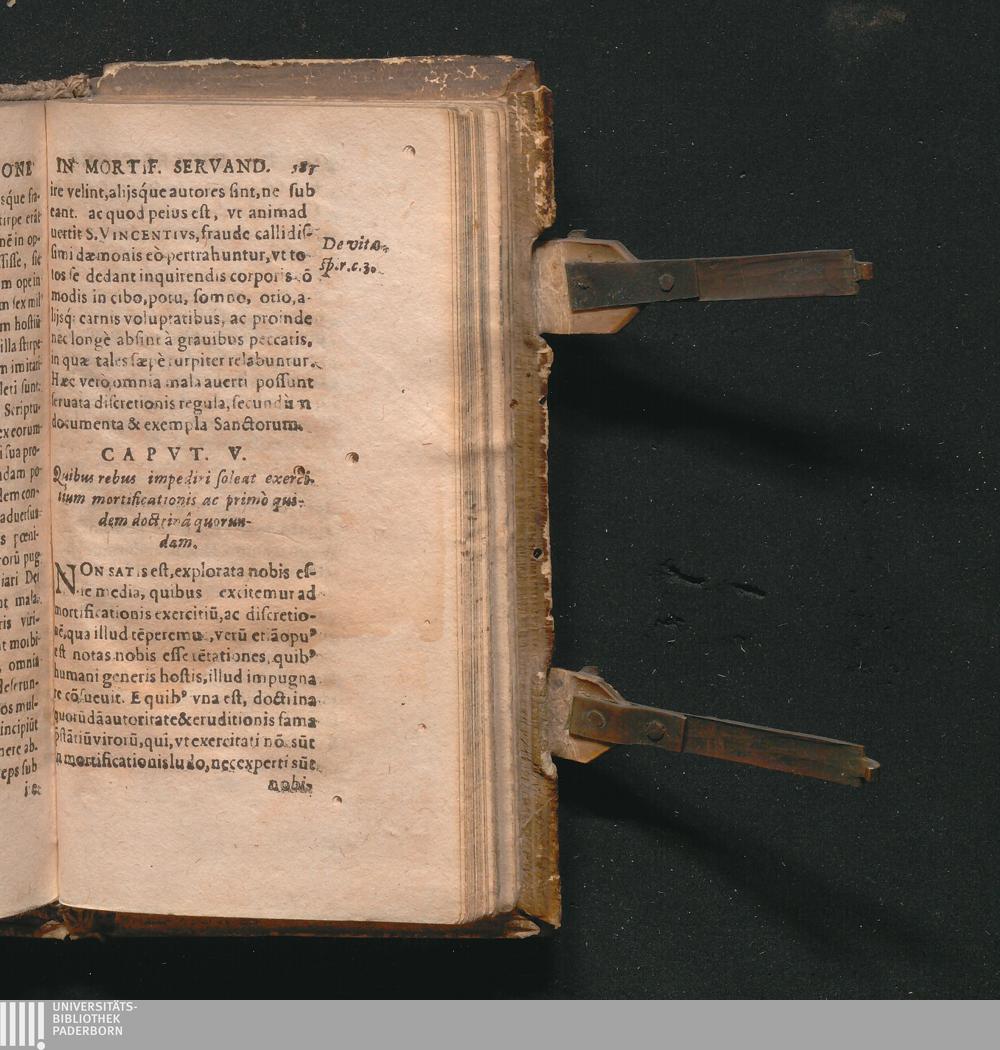 ONE
sq́ue sin-
tirpe erāt
nē in op-
sisse, sic
m ope in
m sex mil
m hostiū
illa stirpe
m imitari
leti sunt:
Scriptu-
ex eorum
i sua pro-
ndam po
dem con-
aduersus
s pœni-
rorū pug
iari Dei
nt mala.
ris viri-
t morbi
omnia
deserun-
os mul-
incipiūt
nere ab.
eps sub
IN MORTIF. SERVAND. 585
ire velint, alijsq́ue autores sint, ne sub
eant. ac quod peius est, vt animad
uertit S. VINCENTIVS, fraude callidis-
simi dæmonis eò pertrahuntur, vt to-
tos se dedant inquirendis corporis cō
modis in cibo, potu, somno, otio, a-
lijsq́; carnis voluptatibus, ac proinde
nec longè absint à grauibus peccatis,
in quæ tales sæpè turpiter relabuntur.
Hæc vero omnia mala auerti possunt
seruata discretionis regula, secundùm
documenta & exempla Sanctorum.
De vita
sp.r.c.3.
CAPVT. V.
Quibus rebus impediri soleat exerci-
tium mortificationis ac primò qui-
dem doctrinâ quorun-
dam.
NON SATIS est, explorata nobis es-
se media, quibus excitemur ad
mortificationis exercitiū, ac discretio-
nē, qua illud tēperemus, verū etiā opus
est notas nobis esse tētationes, quibꝰ
humani generis hostis, illud impugna
re cōsueuit. E quibꝰ vna est, doctrina
quorūdā autoritate & eruditionis fama
pstātiū virorū, qui, vt exercitati nō sūt
in mortificationis ludo, nec experti sūt
nobi-
UNIVERSITÄTS-
BIBLIOTHEK
PADERBORN